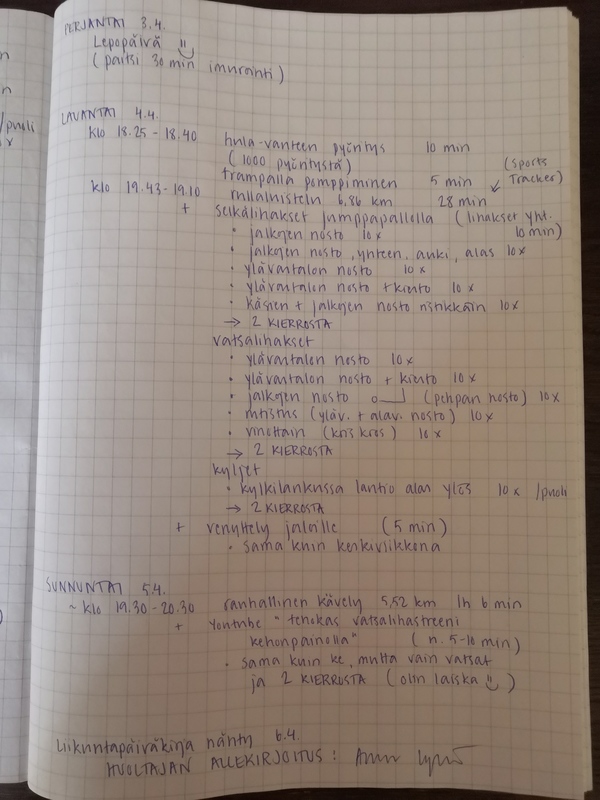 n
n
/puoli
x
PERJANTAI 3.4.
Lepopäivä
(paitsi 30 min imurointi)
LAUANTAI 4.4.
klo 18.25 - 18.40 hula-vanteen pyöritys 10 min
(1000 pyöritystä)
trampalla pomppiminen 5 min (Sports Tracker)
klo 19.43 - 19.10 rullaluistelu 6,86 km 28 min
+ selkälihakset jumppapallolla (lihakset yht. 10 min)
• jalkojen nosto 10x
• jalkojen nosto, yhteen, auki, alas 10x
• ylävartalon nosto 10x
• ylävartalon nosto + kierto 10x
• käsien + jalkojen nosto ristikkäin 10x
→ 2 KIERROSTA
vatsalihakset
• ylävartalon nosto 10x
• ylävartalon nosto + kierto 10x
• jalkojen nosto (pehpan nosto) 10x
• rutistus (yläv. + alav. nosto) 10x
• vinottain (kriskros) 10x
→ 2 KIERROSTA
kyljet
• kylkilankussa lantio alas ylös 10x /puoli
→ 2 KIERROSTA
+ venyttely jaloille (5 min)
• sama kuin keskiviikkona
SUNNUNTAI 5.4.
~ klo 19.30 - 20.30 rauhallinen kävely 5,52 km 1h 6 min
+ Youtube "tehokas vatsalihastreeni
kehonpainolla" (n. 5-10 min)
• sama kuin ke, mutta vain vatsat
ja 2 KIERROSTA (olin laiska)
Liikuntapäiväkirja nähty 6.4.
HUOLTAJAN ALLEKIRJOITUS: